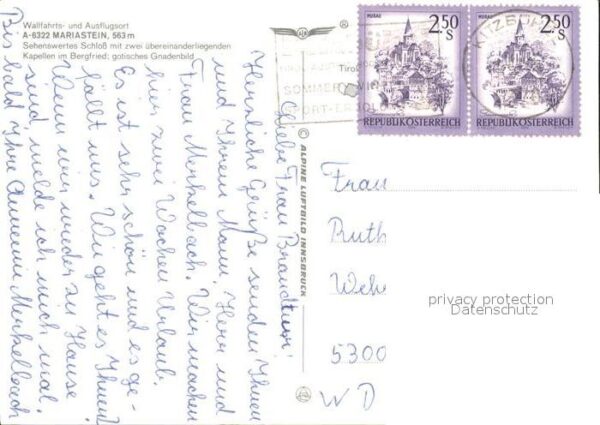 Wallfahrts- und Ausflugsort
A-6322 MARIASTEIN, 563 m
Sehenswertes Schloß mit zwei übereinanderliegenden
Kapellen im Bergfried; gotisches Gnadenbild
Tirol
© ALPINE LUFTBILD INNSBRUCK
Liebe Frau
Herzliche Grüße senden Ihnen
und Ihrem Mann, Herr und
Frau Merkelbach. Wir machen
hier zwei Wochen Urlaub.
Es ist sehr schön und es ge-
fällt uns. Wie geht es Ihnen?
Wenn wir wieder zu Hause
sind, melde ich mich mal.
Bis bald Ihre Annemie Merkelbach
MURAU
2.50
S
REPUBLIK ÖSTERREICH
MURAU
2.50
S
REPUBLIK ÖSTERREICH
KITZBÜHEL
SOMMER
SPORT-ERHOL
Frau
Ruth
Webe
5300
WD
privacy protection
Datenschutz